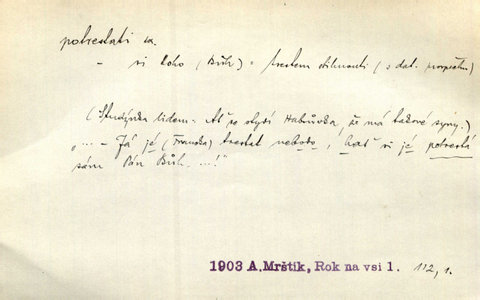 potrestati sa.
– si koho (Bůh) = trestem stihnouti (s dat. prospěchu)
(Studýnka lidem: Ať se stydí Habrůvka, že má takové syny.)
"... – Já jé (Franoša) trestat nebodo, hať si jé potrestá
sám Pán Bůh ...!"
1903 A.Mrštík, Rok na vsi 1. 112, 1.